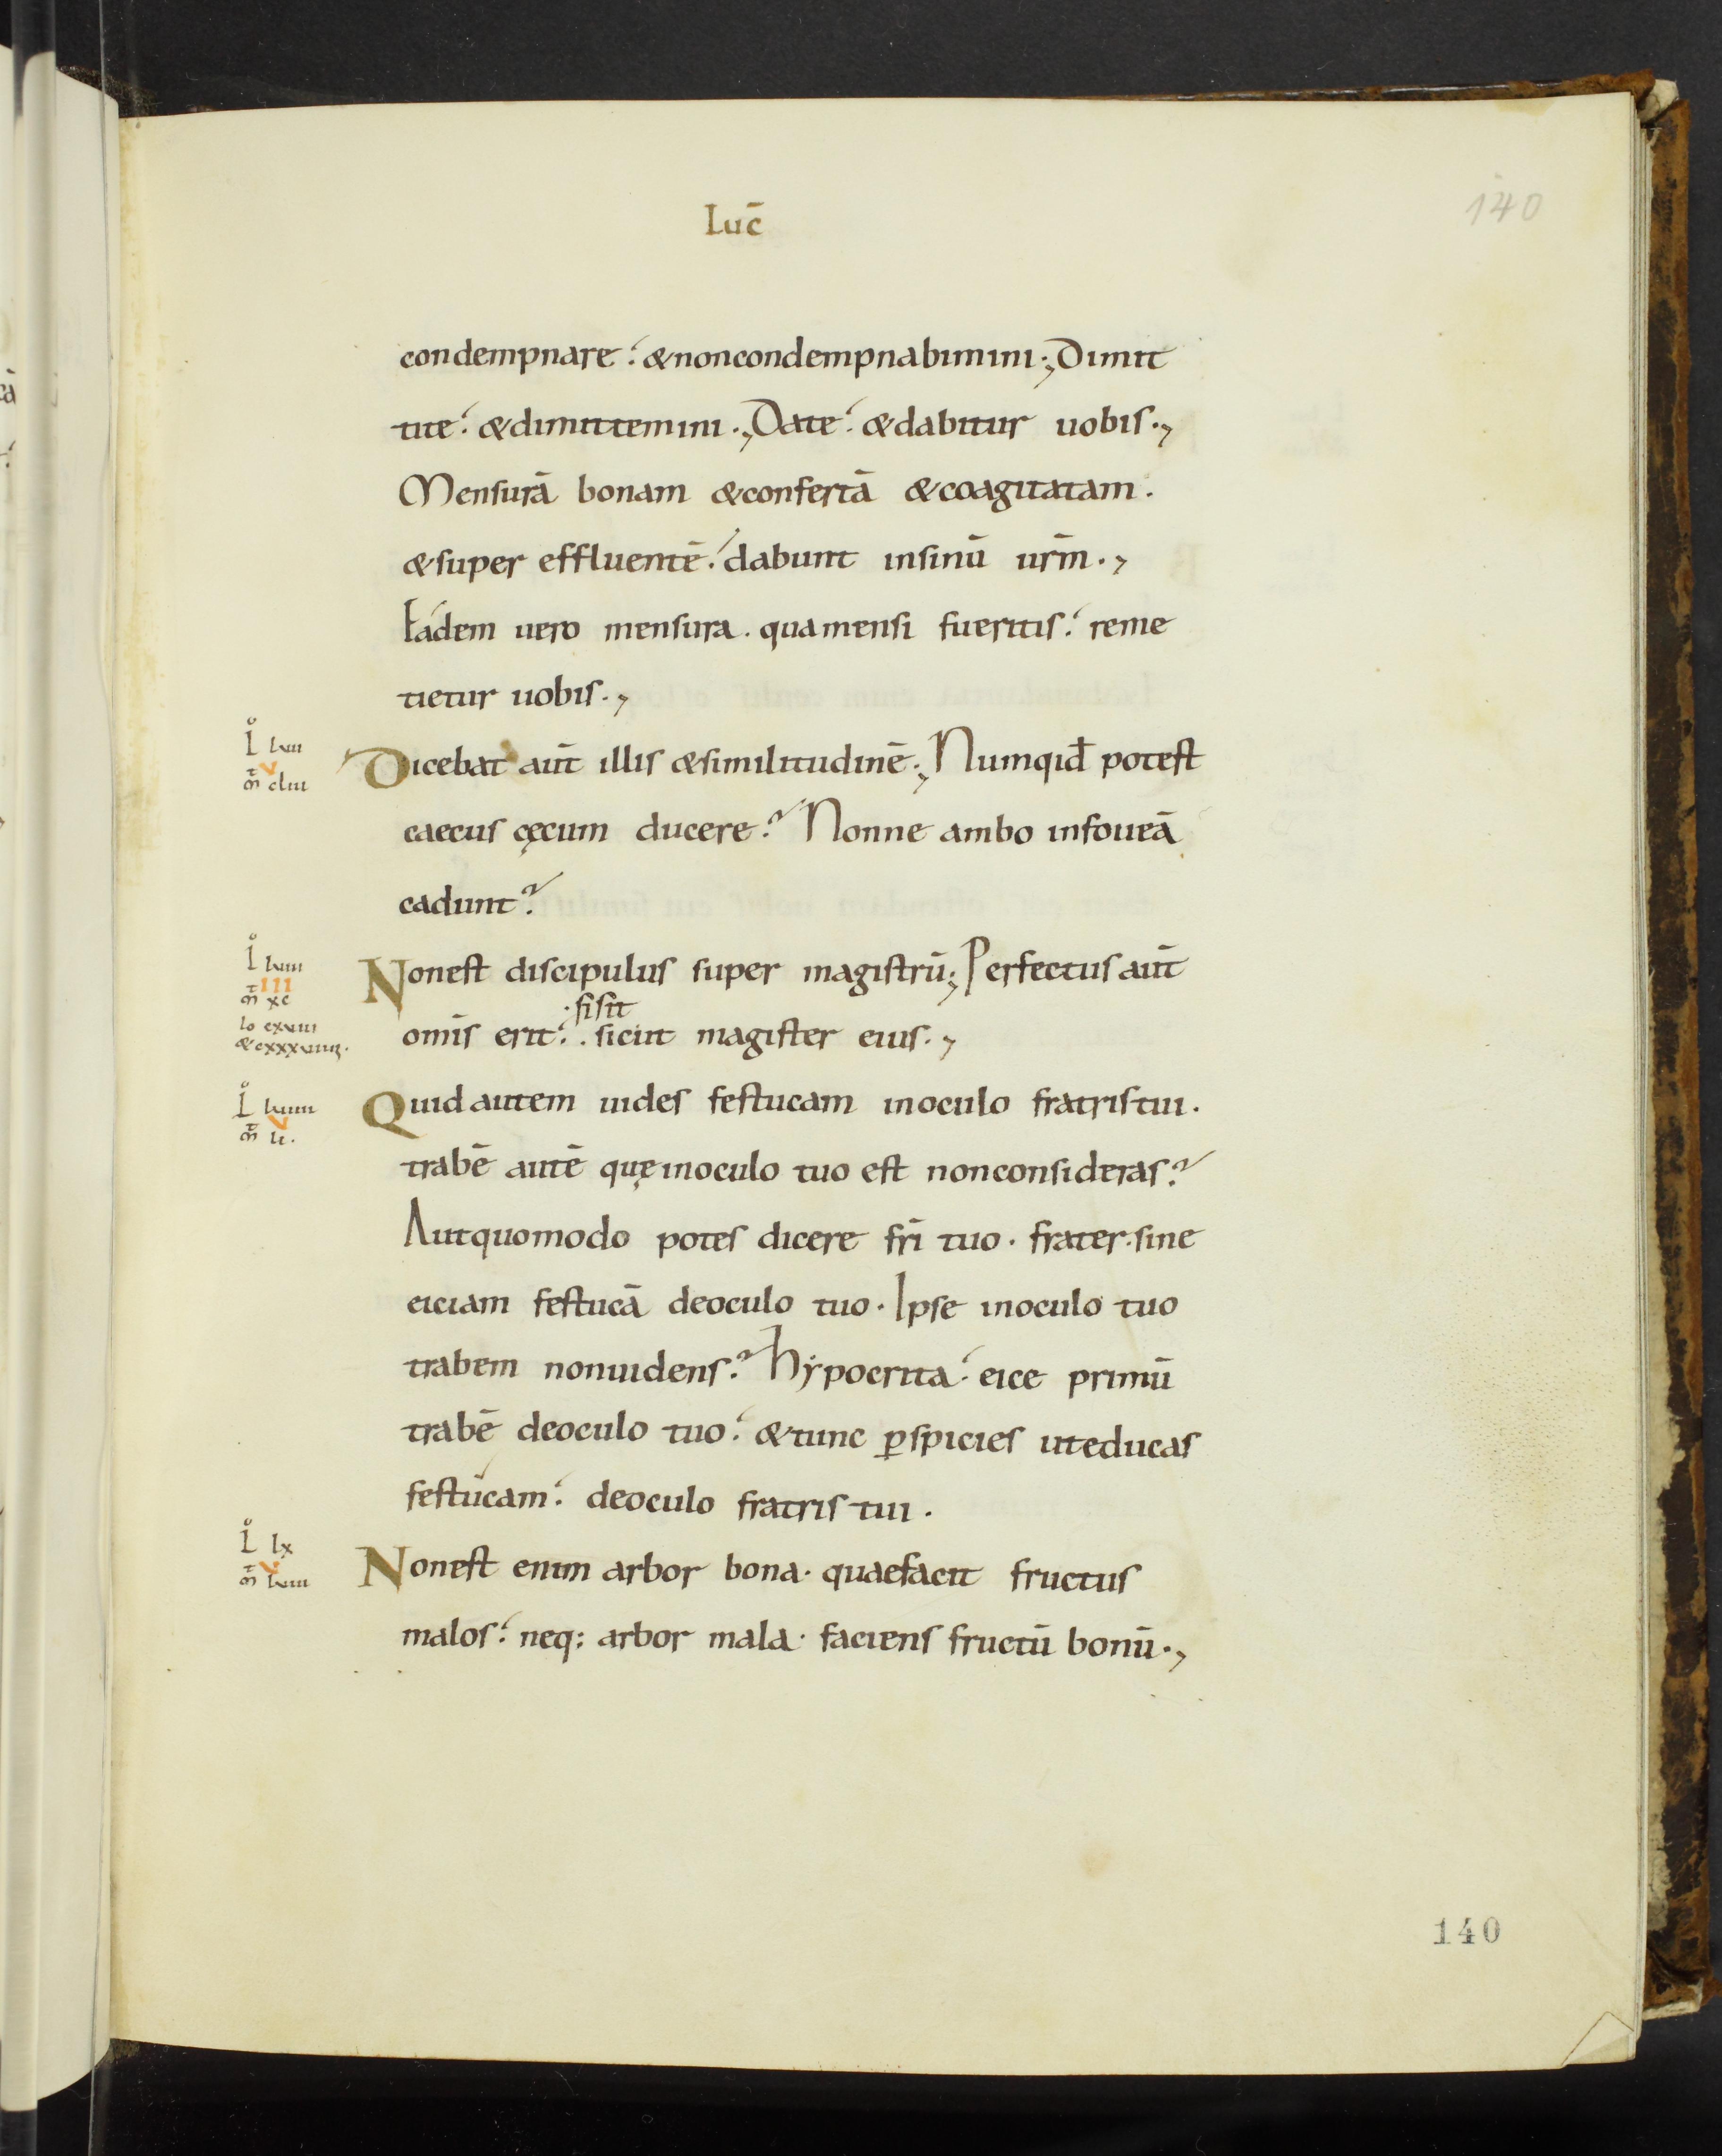 140
Luc̄
condempnare. &noncondempnabimini; Dimit
tite. &dimittemini; Date. &dabitur uobis.,
Mensurā bonam &confertā &coagitatam.
&super effluentē. dabunt insinū ur̄m.,
Eadem uero mensura. quamensi fueritis. reme
tietur uobis.,
L̊ lvii
m̄t V cliii
Dicebat aūt illis &similitudinē; Numqid̄ potest
caecus cęcum ducere? Nonne ambo infoueā
cadunt?
L̊ lviii
m̄t III xc
Nonest discipulus super magistrū; Perfectus aūt
·sisit
Io cxviii
&cxxxviiii.
om̄is erit. . sicut magister eius.,
L̊ lviiii
m̄t V li.
Quid autem uides festucam inoculo fratristui.
trabē autē quęinoculo tuo est nonconsideras?
Autquomodo potes dicere fr̄i tuo. frater. sine
eiciam festucā deoculo tuo. Ipse inoculo tuo
trabem nonuidens? hẏpocrita. eice primū
trabē deoculo tuo. &tunc ꝑspicies uteducas
festucam. deoculo fratris tui.
L̊ lx
m̄t V lviii
Nonest enim arbor bona. quaefacit fructus
malos. neq; arbor mala. faciens fructū bonū.,
140